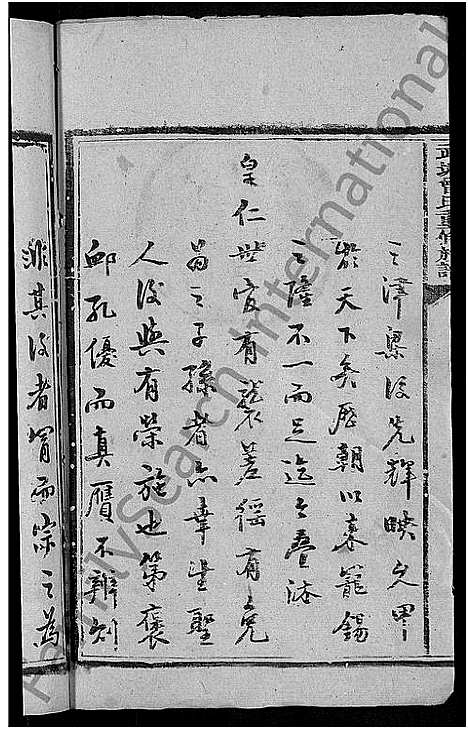 武城曾氏重修族譜
之澤衆後先輝映久甲
於天下矣歷朝以來寵錫
之隆不一而足迄今疊沐
皇仁世官有襲差徭有免
曾之子孫者亦幸生聖
人後與有榮施也第褒
卹孔優而真贋不辨刻
非其後者冒而宗之為
FamilySearch International